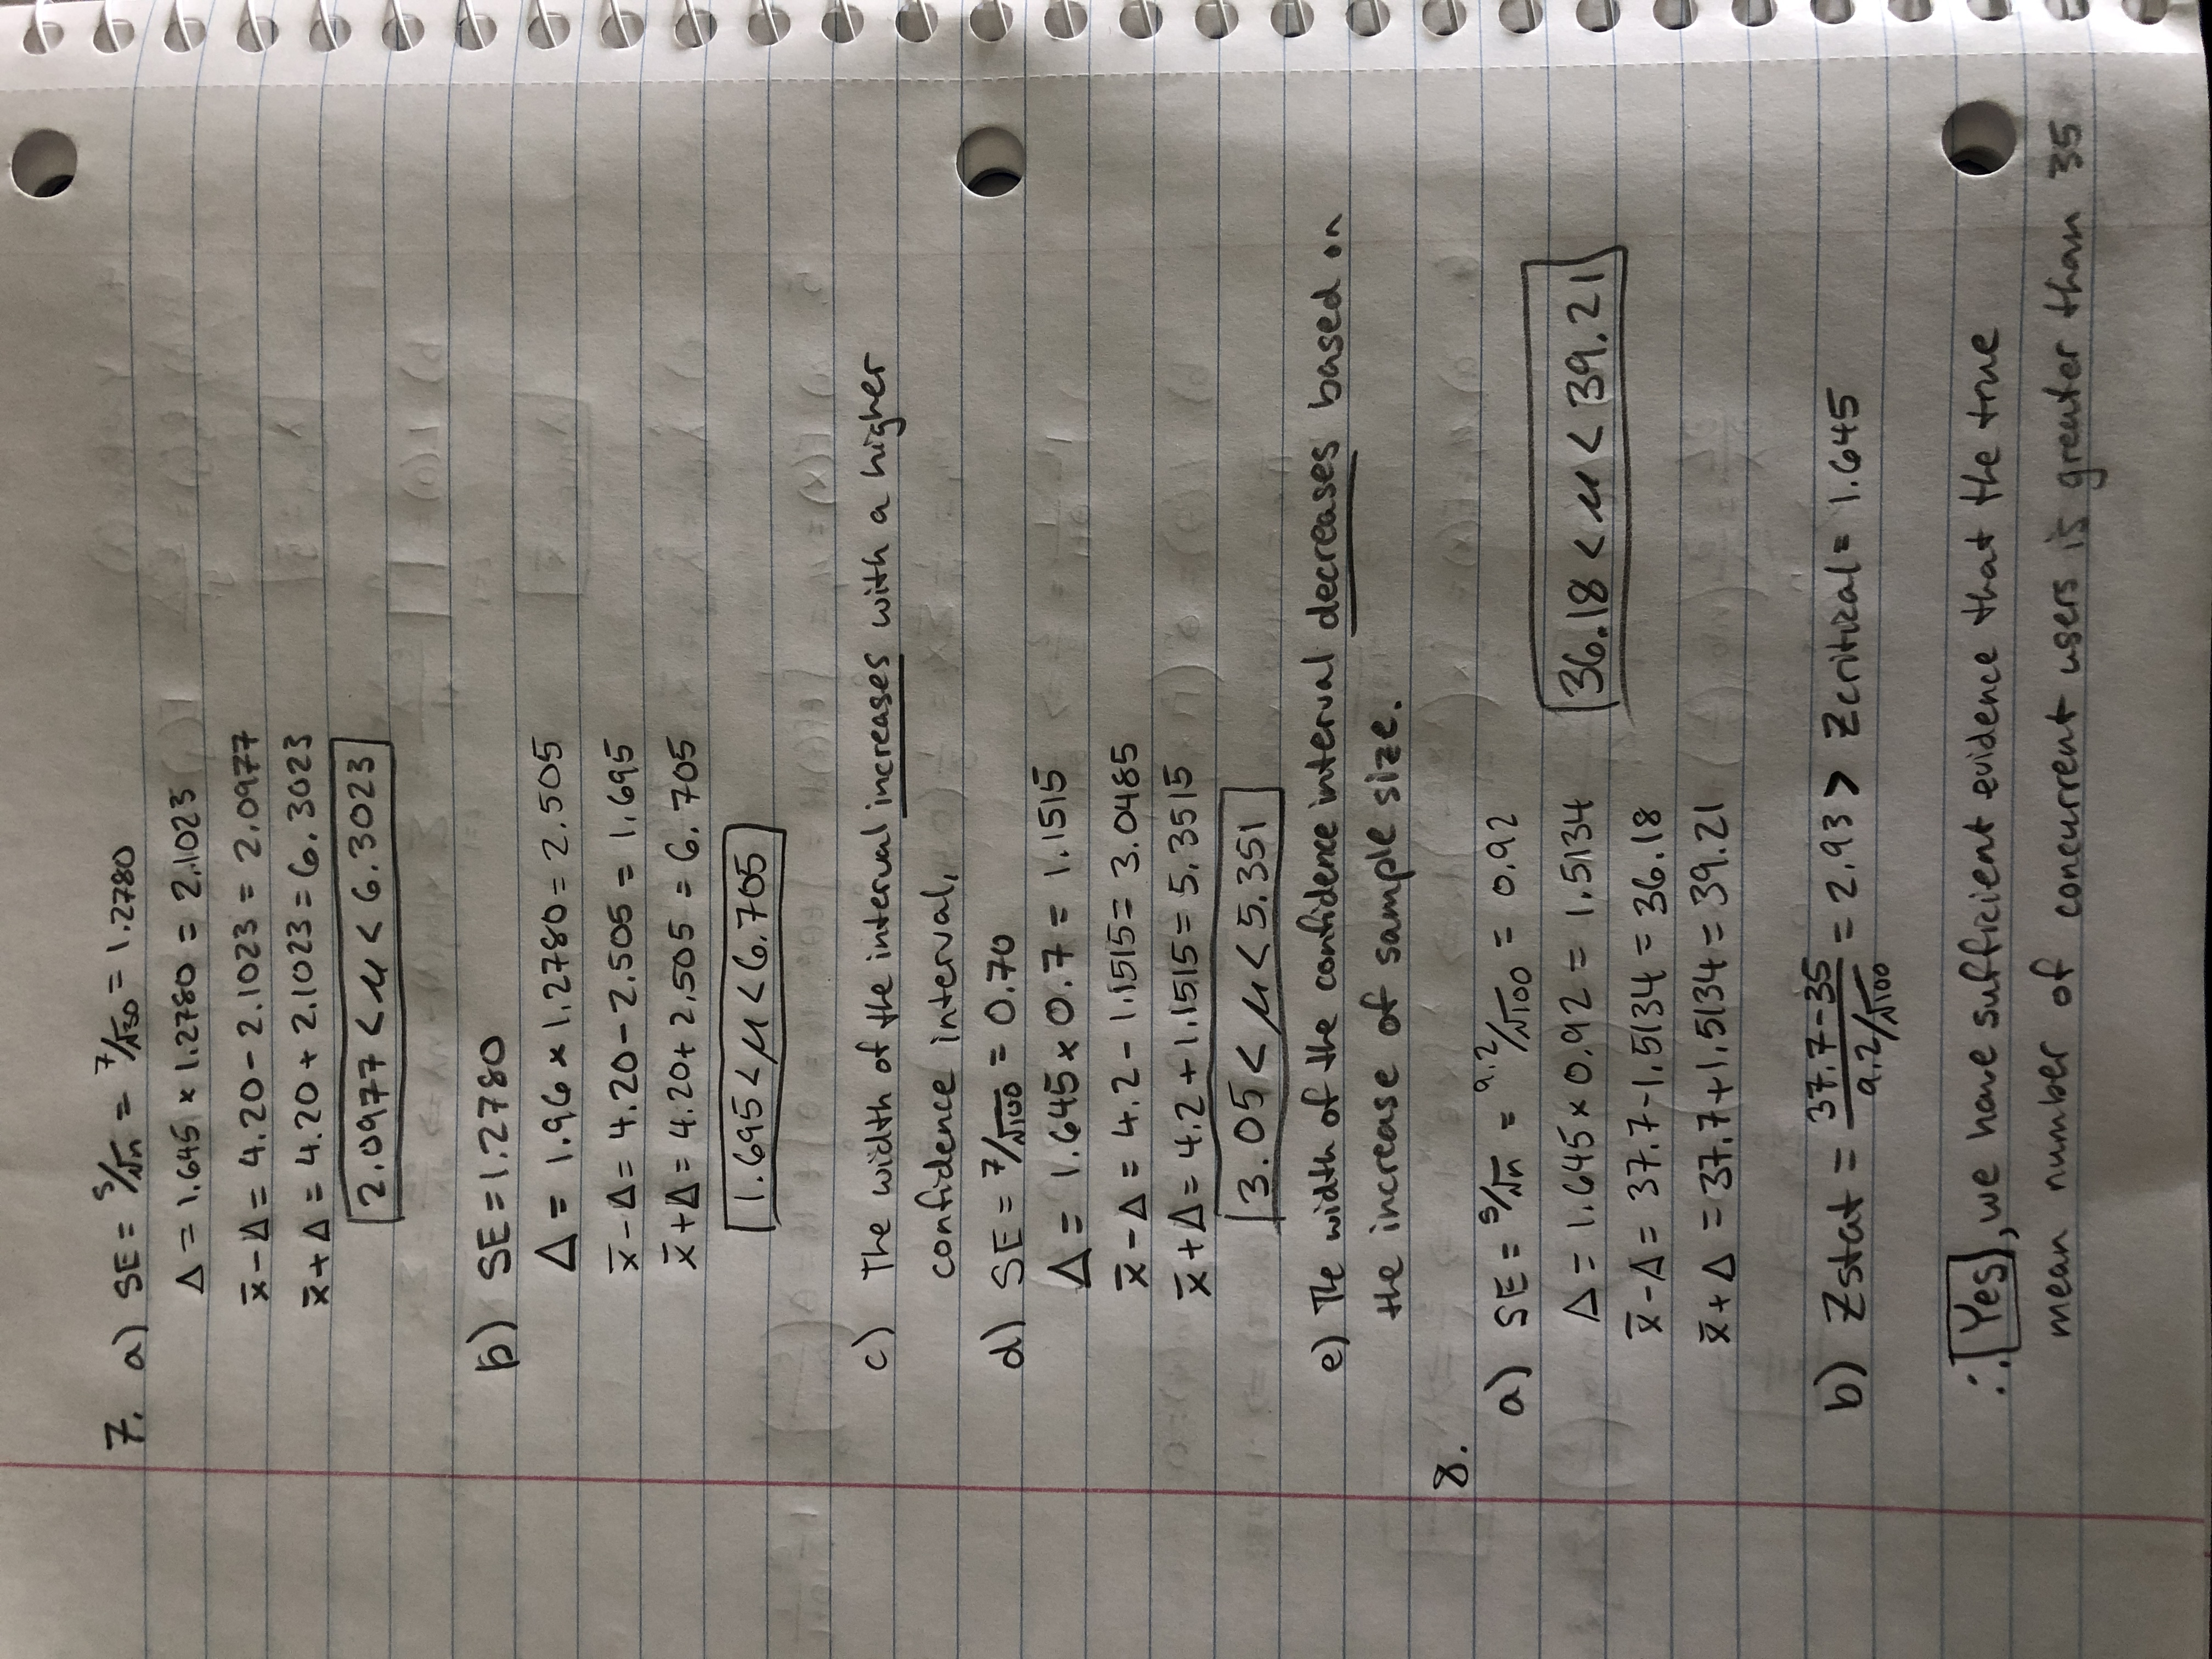 7. a) SE = s/√n = 7/√30 = 1.2780
Δ = 1.645 × 1.2780 = 2.1023
x̄ - Δ = 4.20 - 2.1023 = 2.0977
x̄ + Δ = 4.20 + 2.1023 = 6.3023
2.0977 < μ < 6.3023
b) SE = 1.2780
Δ = 1.96 × 1.2780 = 2.505
x̄ - Δ = 4.20 - 2.505 = 1.695
x̄ + Δ = 4.20 + 2.505 = 6.705
1.695 < μ < 6.705
c) The width of the interval increases with a higher
confidence interval.
d) SE = 7/√100 = 0.70
Δ = 1.645 × 0.7 = 1.1515
x̄ - Δ = 4.2 - 1.1515 = 3.0485
x̄ + Δ = 4.2 + 1.1515 = 5.3515
3.05 < μ < 5.351
e) The width of the confidence interval decreases based on
the increase of sample size.
8.
a) SE = s/√n = 9.2/√100 = 0.92
Δ = 1.645 × 0.92 = 1.5134
36.18 < μ < 39.21
x̄ - Δ = 37.7 - 1.5134 = 36.18
x̄ + Δ = 37.7 + 1.5134 = 39.21
b) Zstat = (37.7 - 35)/(9.2/√100) = 2.93 > Zcritical = 1.645
∴ Yes, we have sufficient evidence that the true
mean number of concurrent users is greater than 35